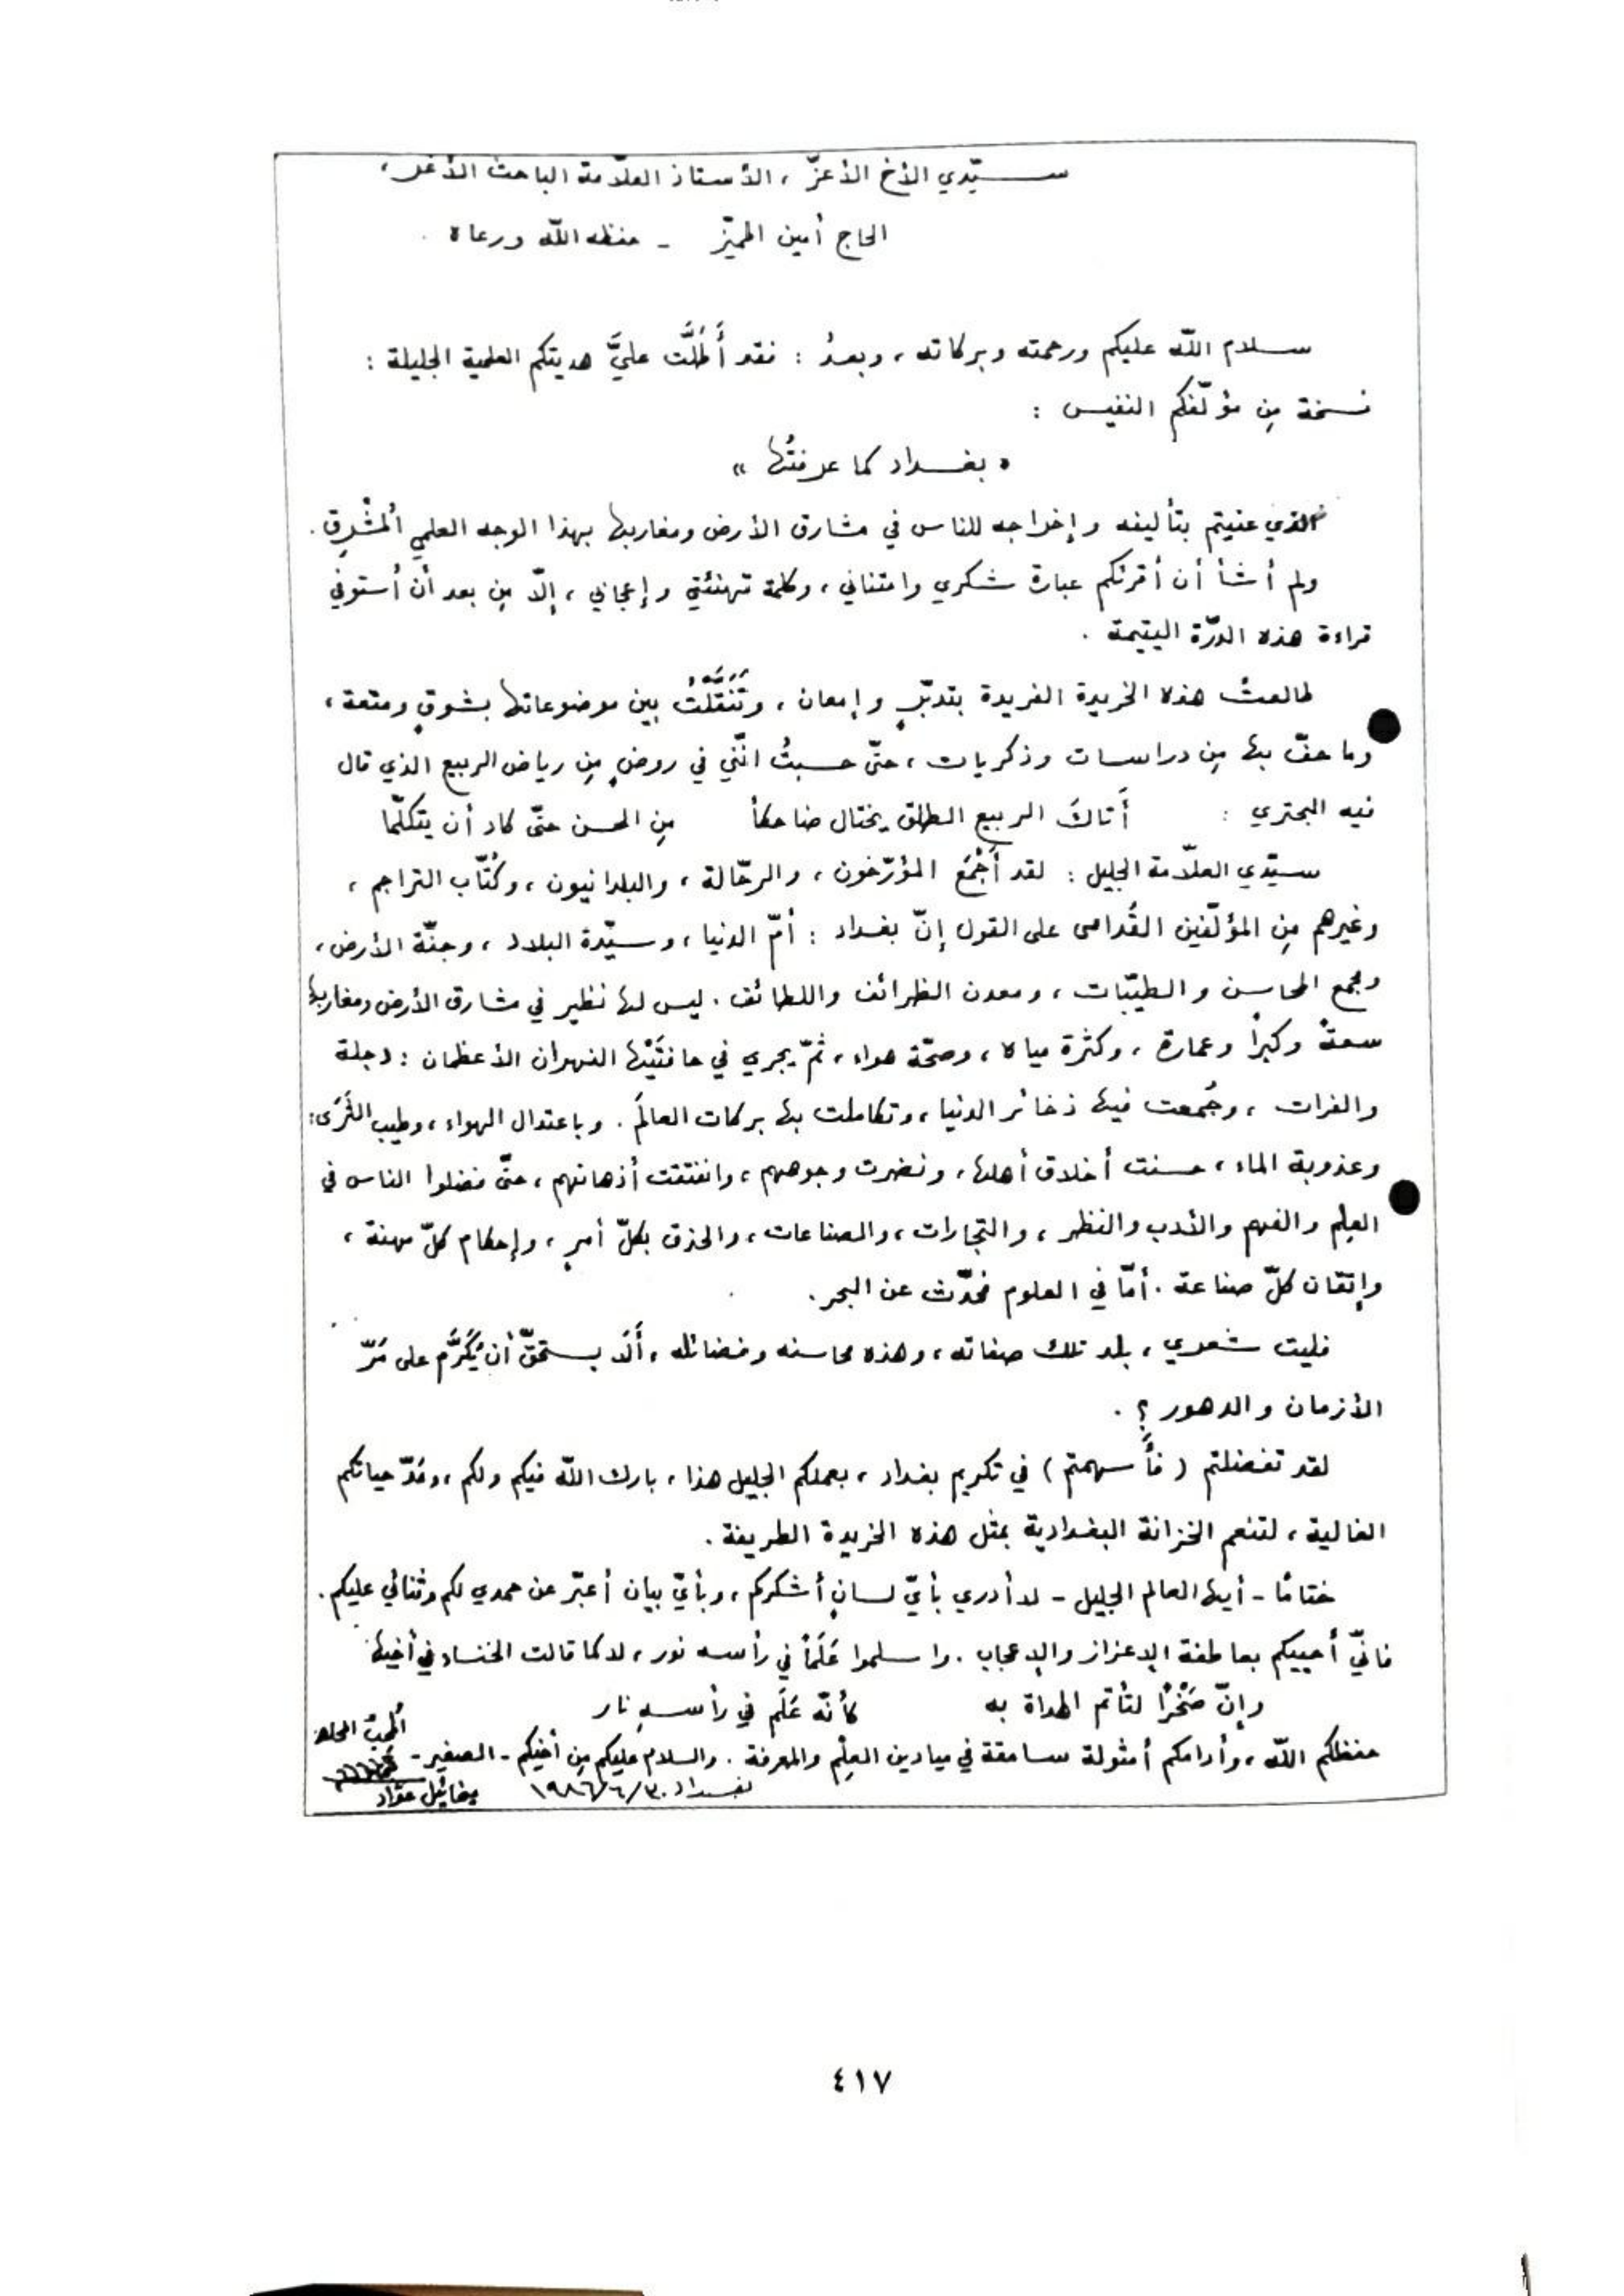 سيّدي الأخ الأعزّ ، الأستاذ العلّامة الباحث الأغر ،
الحاج أمين المميّز - حفظه اللّه ورعاه .
سلام اللّه عليكم ورحمته وبركاته ، وبعدُ : فقد أَطَلَّت عليَّ هديتكم العلمية الجليلة :
نسخة مِن مؤلّفكم النفيس :
« بغداد كما عرفتُها »
الذي عنيتم بتأليفه وإخراجه للناس في مشارق الأرض ومغاربها بهذا الوجه العلمي المُشْرِق .
ولم أشأ أن أقرئكم عبارة شكري وامتناني ، وكلمة تهنئتي وإعجابي ، إلّا مِن بعد أن أستوفي
قراءة هذه الدرّة اليتيمة .
طالعتُ هذه الخريدة الفريدة بتدبّرٍ وإمعان ، وتَنَقَّلْتُ بين موضوعاتها بشوقٍ ومتعة ،
وما حفّ بها مِن دراسات وذكريات ، حتّى حسبتُ انّني في روضٍ مِن رياض الربيع الذي قال
فيه البحتري : أَتاكَ الربيع الطلق يختال ضاحكاً مِن الحسن حتّى كاد أن يتكلّما
سيّدي العلّامة الجليل : لقد أَجْمَعَ المؤرّخون ، والرحّالة ، والبلدانيون ، وكُتّاب التراجم ،
وغيرهم مِن المؤلّفين القُدامى على القول إنّ بغداد : أمّ الدنيا ، وسيّدة البلاد ، وجنّة الأرض ،
ومجمع المحاسن والطيّبات ، ومعدن الظرائف واللطائف . ليس لها نظير في مشارق الأرض ومغاربها
سعةً وكبراً وعمارة ، وكثرة مياه ، وصحّة هواء ، ثمّ يجري في حافتَيْها النهران الأعظمان : دجلة
والفرات ، وجُمعت فيها ذخائر الدنيا ، وتكاملت بها بركات العالَم . وباعتدال الهواء ، وطيب الثَرَى ،
وعذوبة الماء ، حسنت أخلاق أهلها ، ونضرت وجوههم ، وانفتقت أذهانهم ، حتّى فضلوا الناس في
العِلم والفهم والأدب والنظر ، والتجارات ، والصناعات ، والحذق بكلّ أمرٍ ، وإحكام كلّ مهنة ،
وإتقان كلّ صناعة . أمّا في العلوم فحدّث عن البحر .
فليت شعري ، بلد تلك صفاته ، وهذه محاسنه وفضائله ، أَلَا يستحقّ أن يُكَرَّم على مَرّ
الأزمان والدهور ؟ .
لقد تفضلتم ( فأَسهمتم ) في تكريم بغداد ، بعملكم الجليل هذا ، بارك اللّه فيكم ولكم ، ومَدّ حياتكم
الغالية ، لتنعم الخزانة البغدادية بمثل هذه الخريدة الطريفة .
ختامًا - أيها العالم الجليل - لا أدري بأيّ لسانٍ أشكركم ، وبأيّ بيان أعبّر عن حمدي لكم وثنائي عليكم .
فانّي أحييكم بعاطفة الإعزاز والإعجاب . واسلموا عَلَماً في رأسه نور ، لا كما قالت الخنساء في أخيها
وإنّ صَخْرًا لتأتم الهداة به كأنّه عَلَم في رأسهِ نار
حفظكم اللّه ، وأدامكم أمثولة سامقة في ميادين العِلْم والمعرفة . والسلام عليكم مِن أخيكم - الصغير -
المُحِبّ المخلص
ميخائيل عوّاد
بغداد ٣٠/٦/١٩٨٦
٤١٧